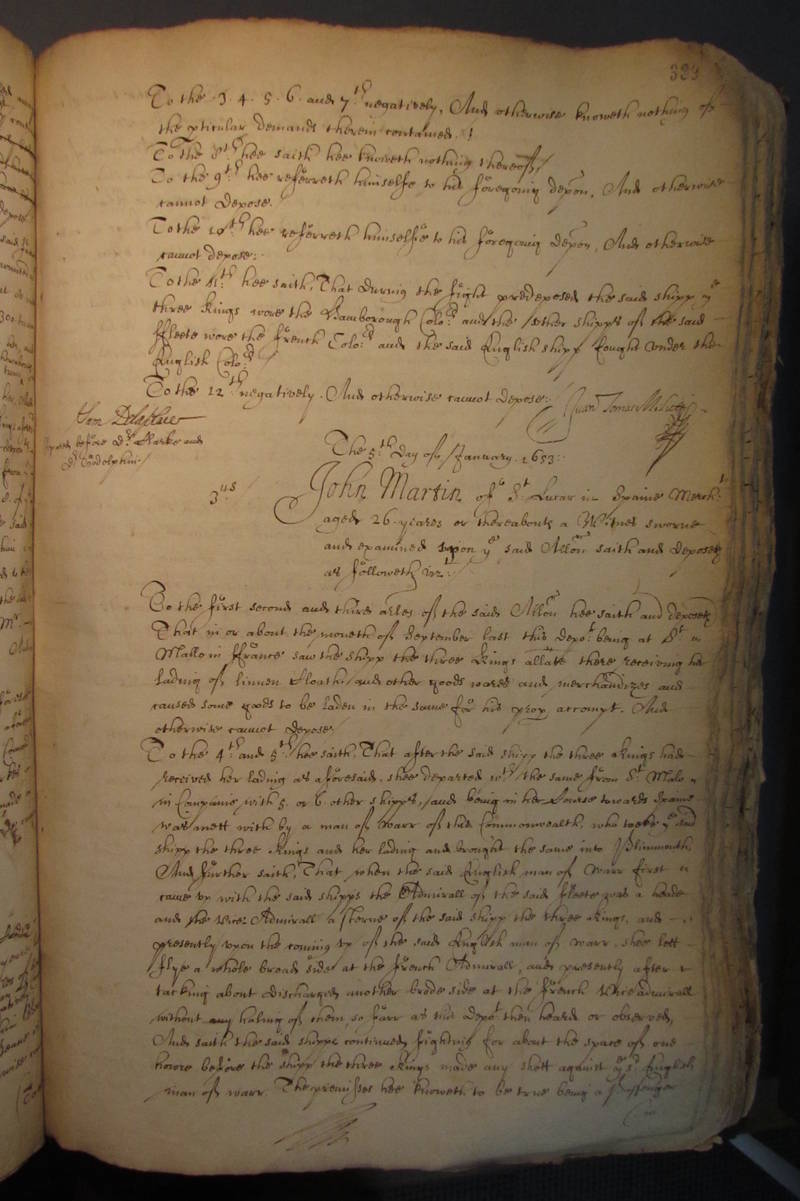 333
To the .3. 4. 5. 6. and 7th negatively, And otherwise knoweth nothing of
the pticular demands therein contained./
To The 8th hee saith hee knoweth nothing thereof./
To the 9th hee referreth himselfe to his foregoing depon, And otherwise
cannot depose.
To the 10th hee referreth himselfe to his foregoing depon, And otherwise
cannot depose:
To the 11th hee saith, That during the fight predeposed the said shipp ye
three Kings wore the Hamborough Colors and the other shipps of the said
ffleete wore the french Colors and the said English shipp fought under the
English Colors
To the 12th negatively. And otherwise cannot depose:
Juan Tomas
before Dr Clarke and
Dr Godolphin./
The 5th Day of January. 1653:
3us
John Martin of St Lucar in Spaine Mercht
aged 26. yeares or thereabouts a Witnes sworne
and examined upon ye said Allon saith and deposeth
as followeth vizt:
To the first second and third arles of the said Allon hee saith and deposeth
That in or about the moneth of September last this depot being at St
Mallo in ffrance saw the shipp the three Kings allate there receiving her
lading of linnen Cloath, and other goods wares and merchandizes and
caused some goods to be laden in the same for his prop accompt. And
otherwise cannot depose/
To the 4th and 5th hee saith, That after the said shipp the three Kings had
received her lading as aforesaid, shee departed wth the same from St Malo
in Companie with 5. or 6. other shipps, and being in her Course towards Spaine
was mett with by a man of warr of this Commonwealth, who tooke ye said
shipp the three Kings and her lading and brought the same into Plimouth,
And further saith, That when the said English man of warr first
came up with the said shipps the Admirall of the said fleete was a heade
and the Vice Admirall a sterne of the said shipp the three Kings, and
presently upon the coming up of the said English man of warr, shee lett
flye a whole broad side at the french Admirall, and presently after
tacking about discharged another brode side at the french Viceadmirall
without any haling of them, so farr as this depot then heard or observed,
And saith the said shipps continued fighting for about the space of one
howre before the shipp the three Kings made any shott against ye sd English
man of warr. The premisses hee knoweth to be true being a passenger
in